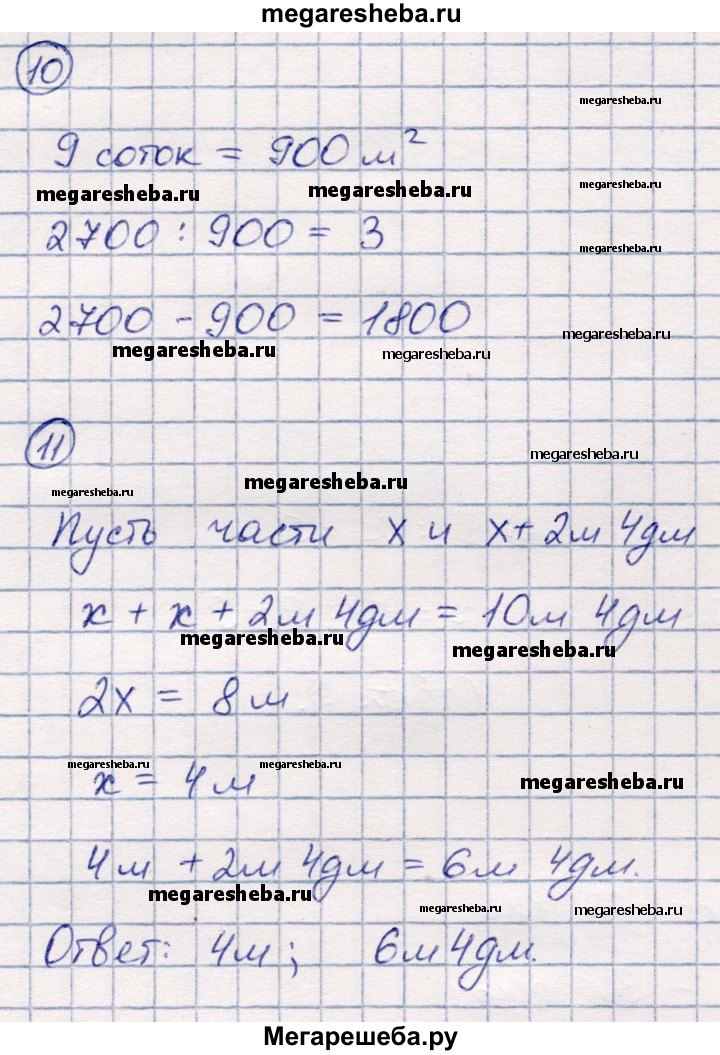 megaresheba.ru
10
megaresheba.ru
9 соток = 900 м²
megaresheba.ru megaresheba.ru megaresheba.ru
2700 : 900 = 3
megaresheba.ru
2700 - 900 = 1800
megaresheba.ru megaresheba.ru megaresheba.ru
11
megaresheba.ru
megaresheba.ru megaresheba.ru
Пусть части x и x + 2м 4дм
x + x + 2м 4дм = 10м 4дм
megaresheba.ru megaresheba.ru
2x = 8м
megaresheba.ru megaresheba.ru
x = 4м
megaresheba.ru
4м + 2м 4дм = 6м 4дм.
megaresheba.ru megaresheba.ru megaresheba.ru
Ответ: 4м; 6м 4дм.
Мегарешеба.ру